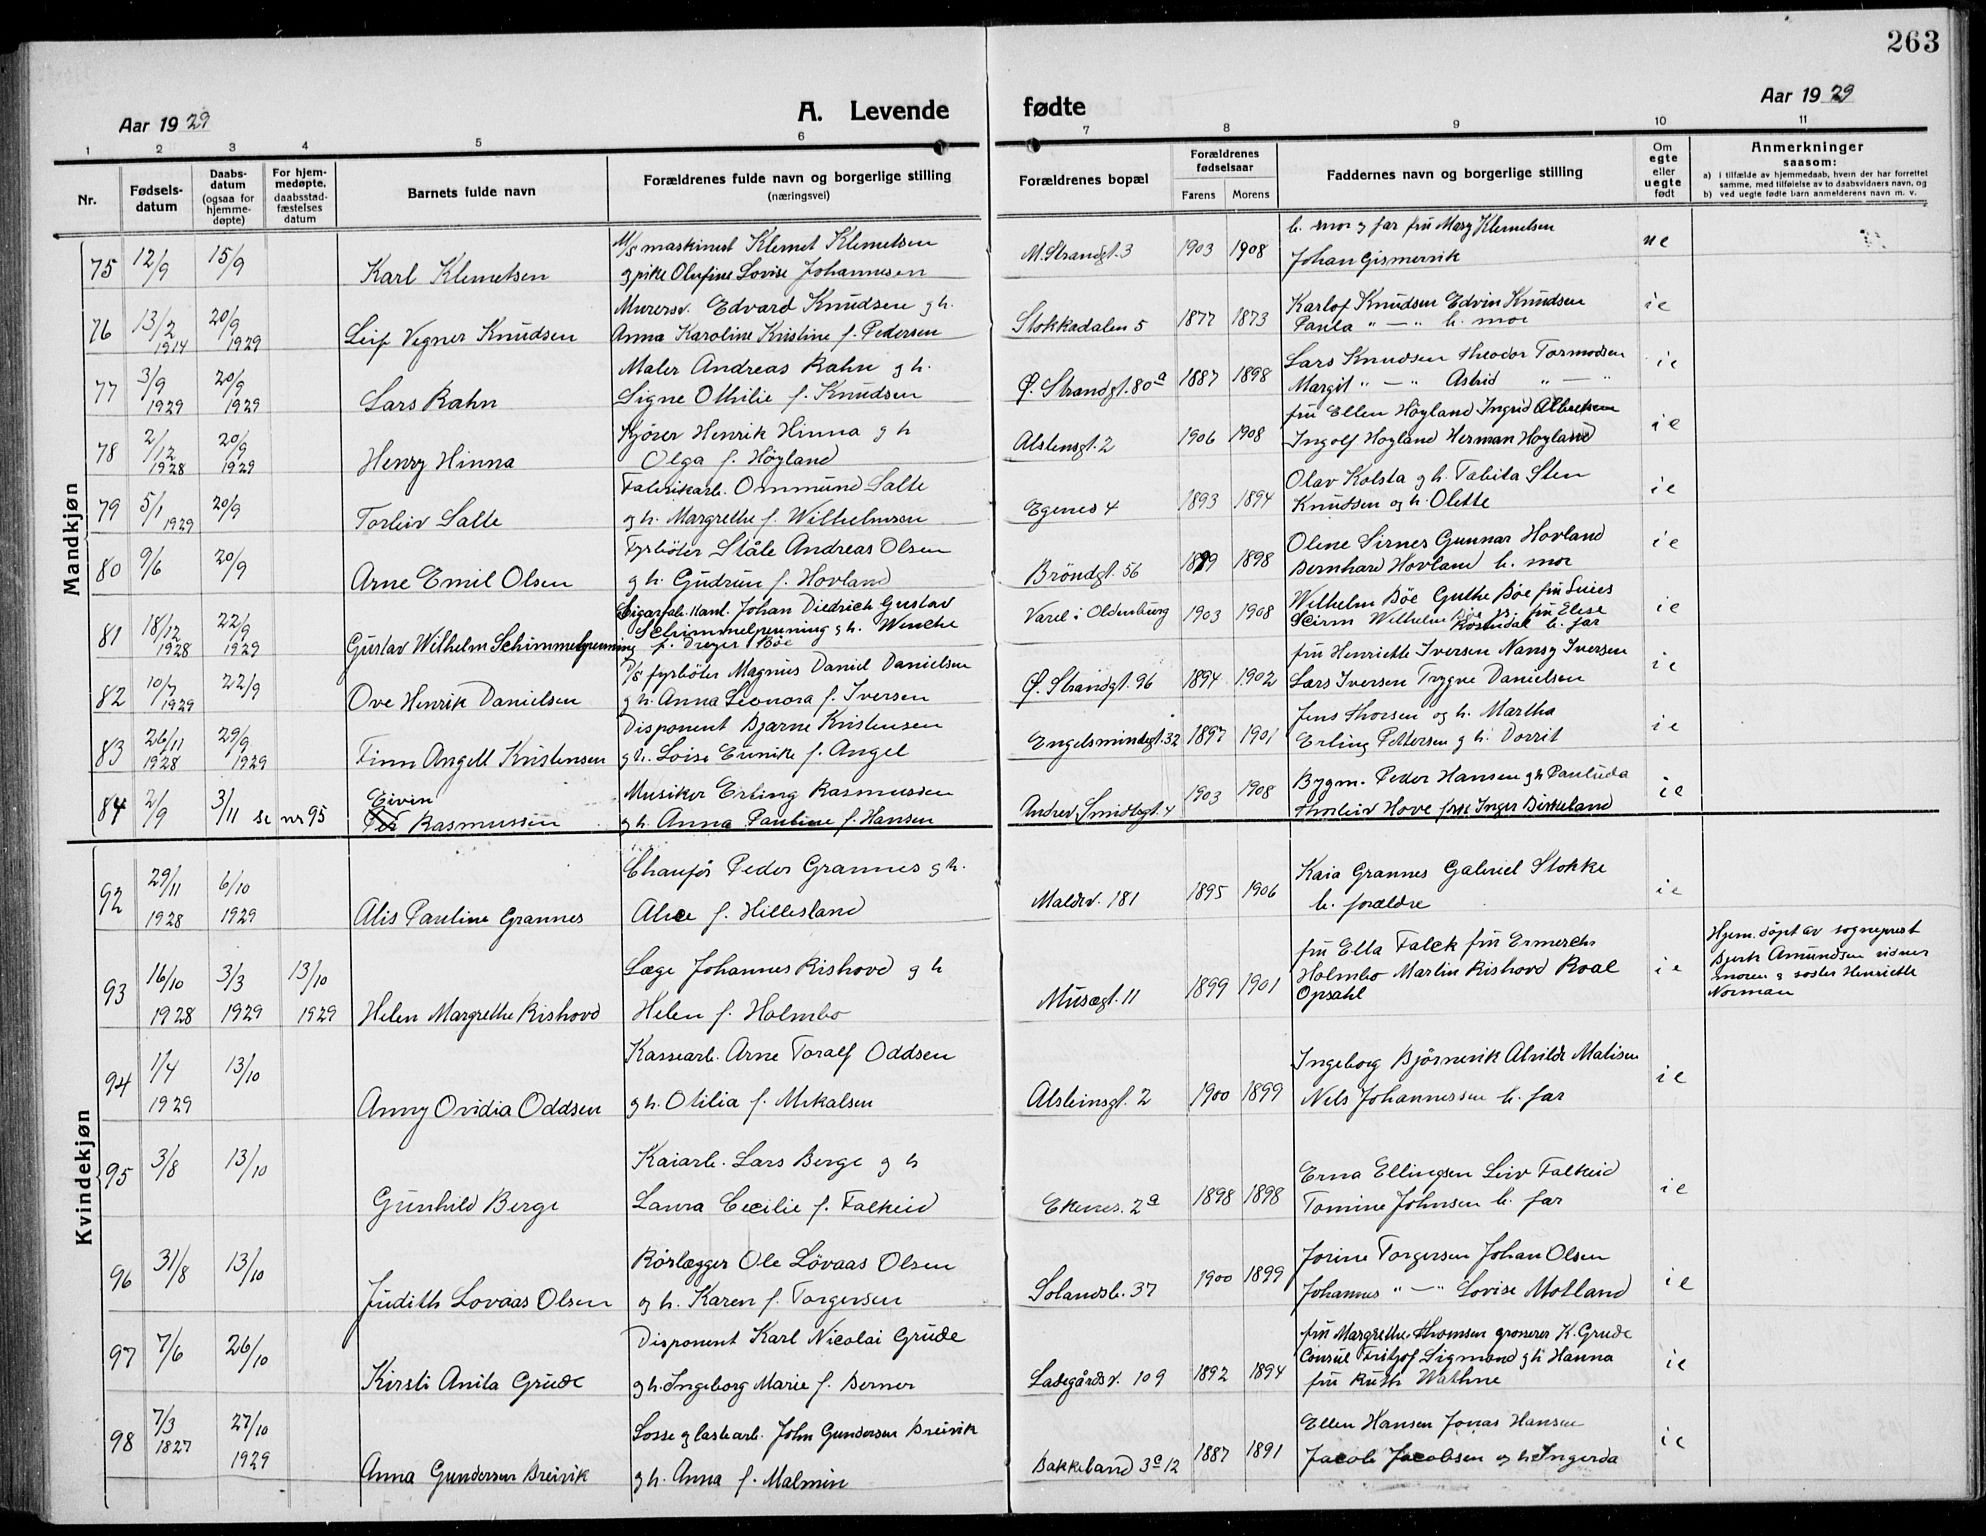 263
Aar 1929
A. Levende fødte
Aar 1929
1 2 3 4 5 6 7 8 9 10 11
Nr.
Fødsels-
datum
Daabs-
datum
(ogsaa for
hjemme-
døpte)
For hjem-
medøpte,
daabsstad-
fæstelses
datum
Barnets fulde navn
Forældrenes fulde navn og borgerlige stilling
(næringsvei)
Forældrenes bopæl
Forældrenes
fødselsaar
Farens Morens
Faddernes navn og borgerlige stilling
Om
egte
eller
uegte
født
Anmerkninger
saasom:
a) i tilfælde av hjemmedaab, hvem der har forrettet
samme, med tilføielse av to daabsvidners navn, og
b) ved uegte fødte barn anmelderens navn m. v.
Mandkjøn
M/s maskinest Klemet Klemetsen b. mor g far fru Mary Klemetsen
75 12/9 15/9 Karl Klemetsen g pike Olufine Lovise Johannesen M. Strandgt. 3 1903 1908 Johan Gismervik ue
Murersv. Edvard Knudsen g h. Karlof Knudsen Edvin Knudsen
76 13/2 1914 20/9 1929 Leif Vegner Knudsen Anna Karoline Kristine f. Pedersen Stokkadalen 5 1877 1873 Paula " — " b. mor ie
Maler Andreas Rahn g h. Lars Knudsen Theodor Tormodsen
77 3/9 1929 20/9 1929 Lars Rahn Signe Othilie f. Knudsen Ø. Strandgt. 80a 1887 1898 Margit " — " Astrid " — " ie
Kjører Henrik Hinna g h fru Ellen Høyland Ingrid Albretsen
78 2/12 1928 20/9 1929 Henry Hinna Olga f. Høyland Alstensgt. 2 1906 1908 Ingolf Høyland Herman Høyland ie
Fabrikarb. Ommund Salte Olav Kolsta g h. Tabita Sten
79 5/1 1929 20/9 Torleiv Salte og h. Margrethe f. Wilhelmsen Egenes 4 1893 1894 Knudsen og h. Olette ie
Fyrbøter Ståle Andreas Olsen Olene Sirnes Gunnar Hovland
80 9/6 20/9 Arne Emil Olsen g h. Gudrun f. Hovland Brøndgt. 56 1899 1898 Bernhard Hovland b. mor ie
Sigarfab.kant. Johan Diedrich Gustav Wilhelm Bøe Guthe Bøe fru
Schimmelpenning g h. Wenche Wilhelm fru Elise
81 18/12 1928 22/9 1929 Gustav Wilhelm Schimmelpenning f. Dreyer Bøe Varel i Oldenburg 1903 1908 Rosendal b. far ie
D/s fyrbøter Magnus Daniel Danielsen fru Henriette Iversen Nansy Iversen
82 10/7 1929 22/9 Ove Henrik Danielsen g h. Anna Leonora f. Iversen Ø. Strandgt. 96 1894 1902 Lars Iversen Trygve Danielsen ie
Disponent Bjarne Kristensen Jens Thorsen og h. Martha
83 26/11 1928 29/9 1929 Finn Angell Kristensen g h. Loise Eunike f. Angel Engelsmindegt. 32 1897 1901 Erling Pettersen g h. Dorrit ie
Eivin Musiker Erling Rasmussen Bygm. Peder Hansen g h Paulida
84 2/9 3/11 se nr 95 Rasmussen g h. Anna Pauline f. Hansen Andrew Smidtsgt. 4 1903 1908 Thorleiv Hove frk Inger Birkeland ie
Kvindekjøn
Chaufør Peder Grannes g h. Kaia Grannes Gabriel Stokke
92 29/11 1928 6/10 1929 Alis Pauline Grannes Alice f. Hillesland Maldev. 181 1895 1906 b. forældre ie
Læge Johannes Rishovd g h fru Ella Falck fru Hjem. døpt av sogneprest
Holmbo Martin Rishovd Roal Bjerk Amundsen vidner
93 16/10 1928 3/3 1929 13/10 1929 Helen Margrethe Rishovd Helen f. Holmbo Musægt. 11 1899 1901 Opsahl ie moren g søster Henriette
Norman
Kassearb. Arne Toralf Oddsen Ingeborg Bjørnevik Alvilde Matisen
94 1/4 1929 13/10 Anny Ovidia Oddsen g h. Otilia f. Mikalsen Alsteinsgt. 2 1900 1899 Nels Johannessen b. far ie
Kaiarb. Lars Berge g h Erna Ellingsen Leiv Falkeid
95 3/8 13/10 Gunhild Berge Laura Cecilie f. Falkeid Ekenes. 2a 1898 1898 Tomine Johnsen b. far ie
Rørlægger Ole Løvaas Olsen Jorine Torgersen Johan Olsen
96 31/8 13/10 Judith Lovaas Olsen og h. Karen f. Torgersen Solandsb. 37 1900 1899 Johannes " — " Lovise Motland ie
Disponent Karl Nicolai Grude fru Margrethe Thomsen grosserer K. Grude
Consul Fritjof Sigmond g h Hanna
97 7/6 26/10 Kirsti Anita Grude g h. Ingeborg Marie f. Berner Ladegårdsv. 109 1892 1894 fru Ruth Wathne ie
Losse g lastearb. John Gundersen Breivik Ellen Hansen Jonas Hansen
98 7/3 1827 27/10 1929 Anna Gundersen Breivik g h. Anna f. Malmin Bakkeland 3a 12 1887 1891 Jacob Jacobsen og h Ingerda ie